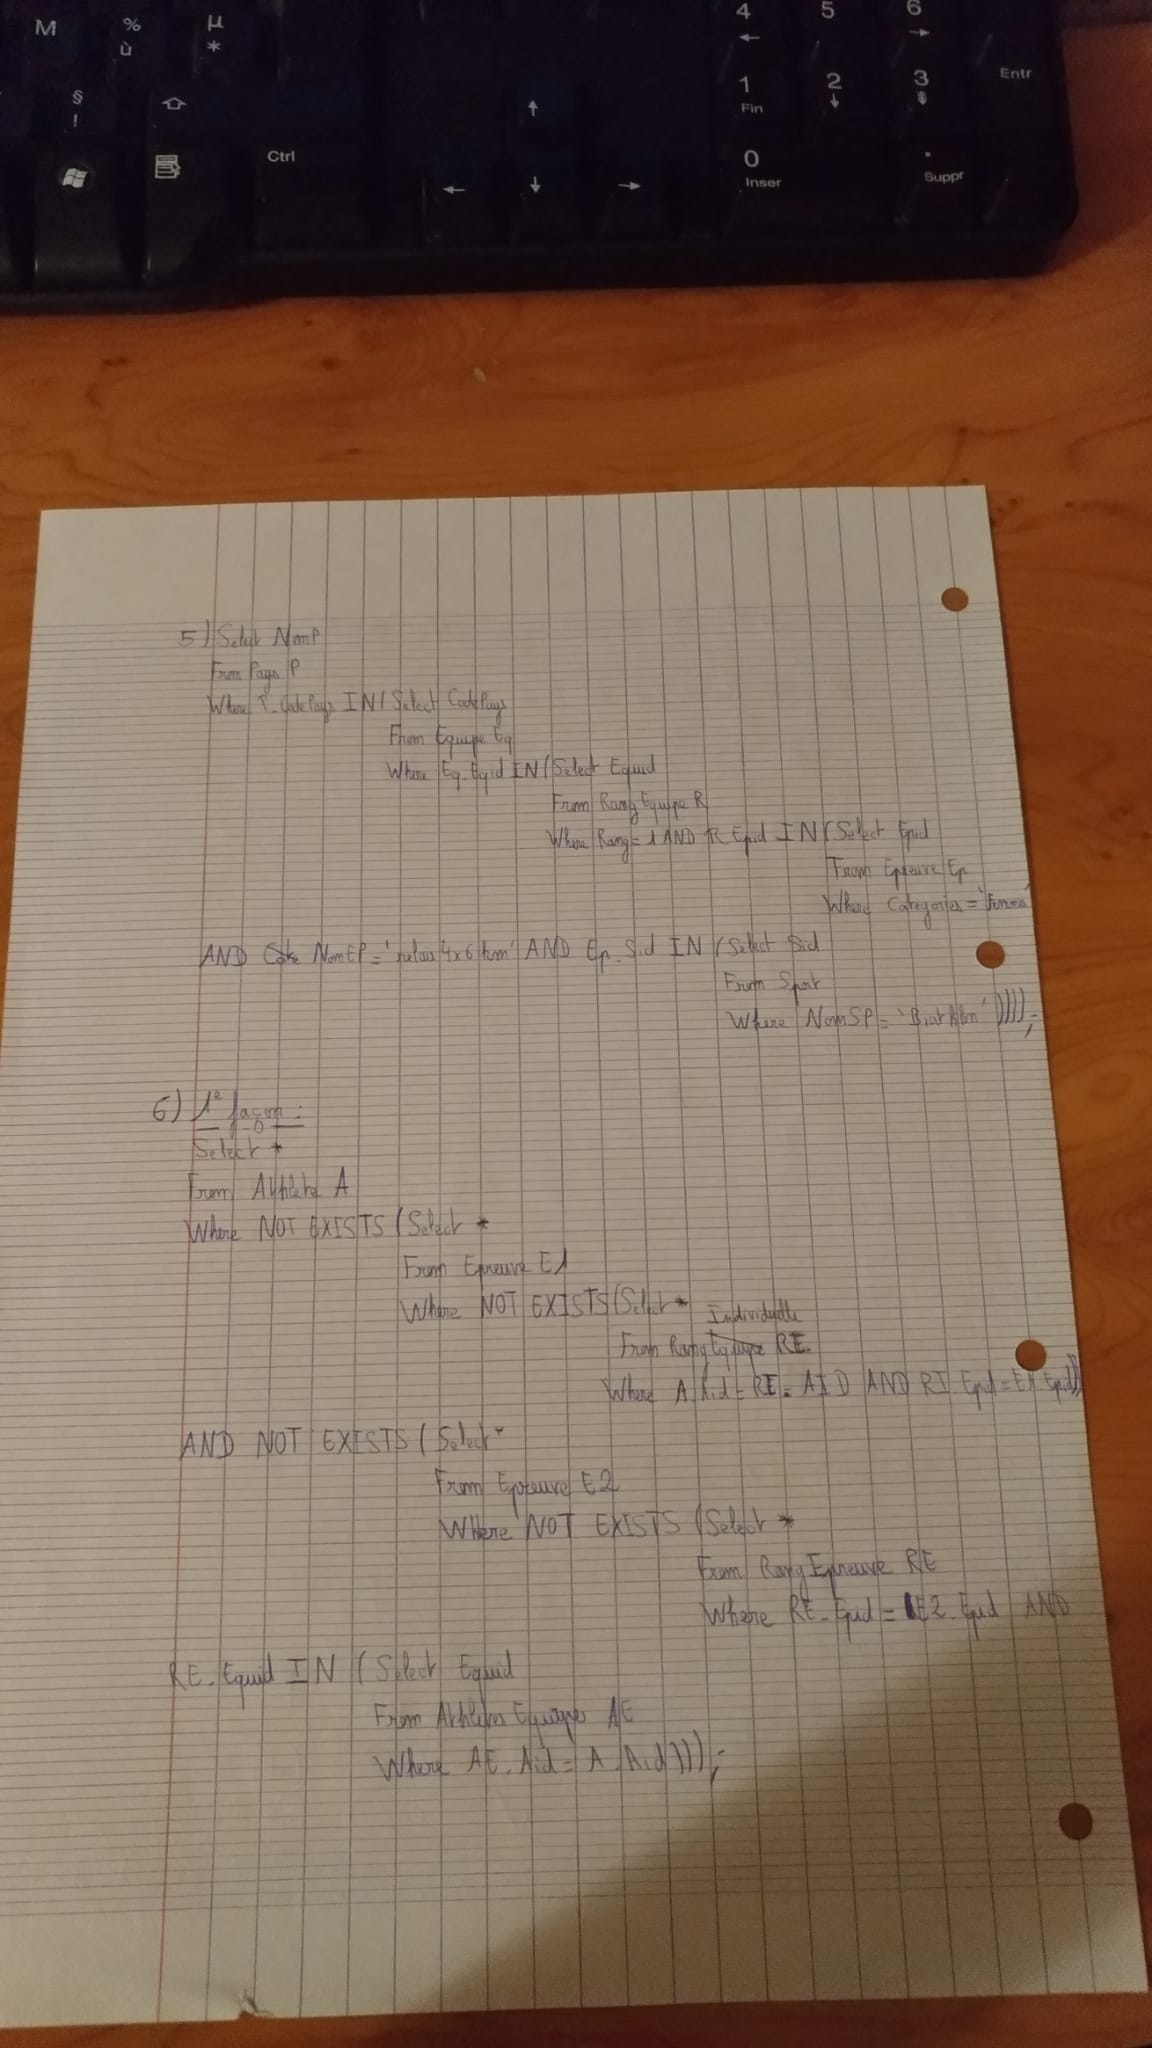 M
%
ù
µ
*
4
5
6
§
!
1
Fin
2
3
Entr
Ctrl
0
Inser
.
Suppr
5) Select NomP
From Pays P
Where P.CodePays IN (Select CodePays
From Equipe Eq
Where Eq.Eqid IN (Select Equid
From RangEquipe R
Where Rang = 1 AND R.Epid IN (Select Epid
From Epreuve Ep
Where Categories =
AND NomEP = 'relais 4x6 km' AND Ep.Sid IN (Select Sid
From Sport
Where NomSP = 'Biathlon'))));
6) 1e façon :
Select *
From Athlete A
Where NOT EXISTS (Select *
From Epreuve E1
Where NOT EXISTS (Select *
Individuelle
From Rang Equipe RE
Where A.Aid = RE.AID AND RI.Epid = E1.Epid))
AND NOT EXISTS (Select *
From Epreuve E2
Where NOT EXISTS (Select *
From RangEpreuve RE
Where RE.Epid = E2.Epid AND
RE.Equid IN (Select Equid
From Athletes Equipe AE
Where AE.Aid = A.Aid)));